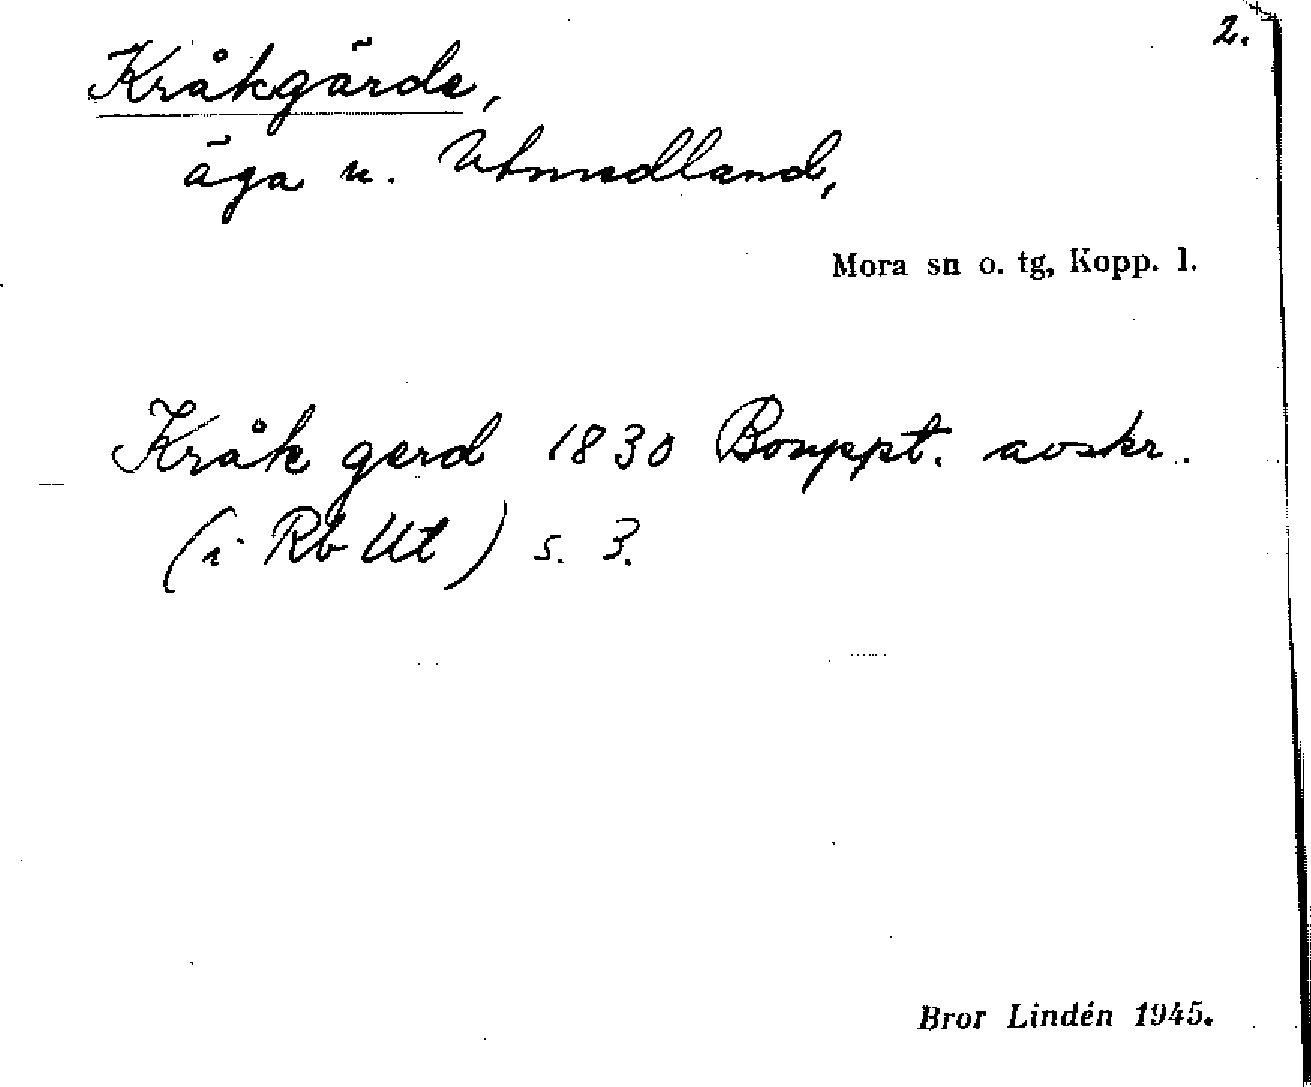 2.
Kråkgärde,
äga u. Utmedland,
Mora sn o. tg, Kopp. l.
Kråk gerd 1830 Bouppt. avskr.
(i Rb Ut) s. 3.
Bror Lindén 1945.